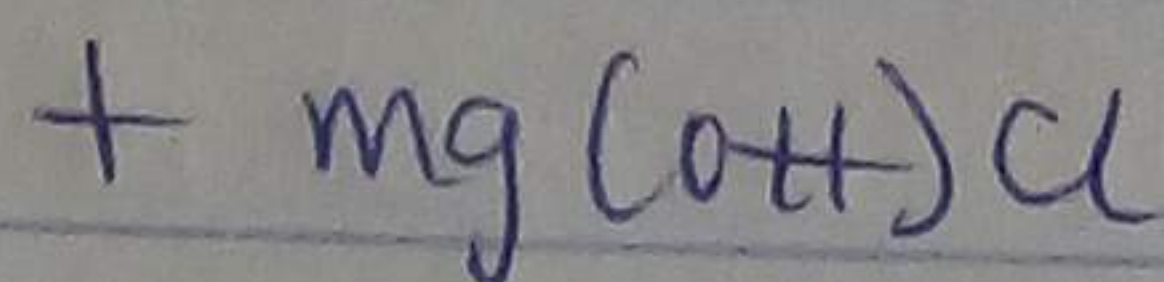 + Mg(OH)Cl